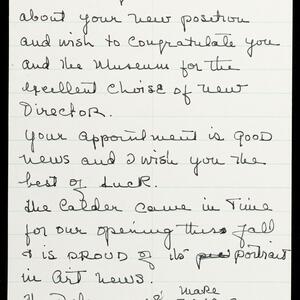 about your new position
and wish to congratulate you
and the Museum for the
excellent choise of new
Director.
Your appointment is Good
news and I wish you the
best of Luck.
The Calder came in Time
for our opening this fall
& is PROUD of its portrait
in Art News.
make